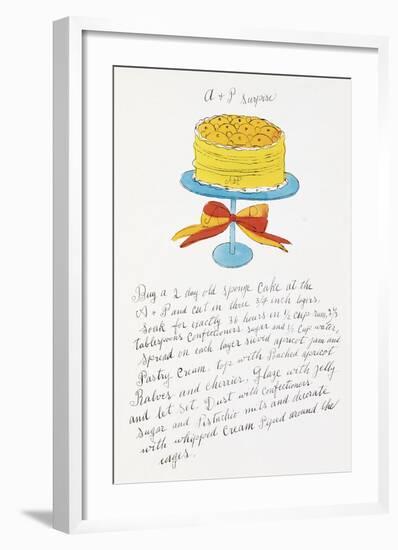 A + P Surprise
A+P
Buy a 2 day old sponge cake at the
A + P and cut in three 3/4 inch layers.
Soak for exactly 36 hours in 1/2 cup rum,
tablespoons confectioners sugar and 1/2 cup water,
spread on each layer sieved apricot jam and
Pastry Cream. top with Poached apricot
Halves and cherries. Glaze with jelly
and let set. Dust with confectioners
sugar and Pistachio nuts and decorate
with whipped cream Piped around the
edges.